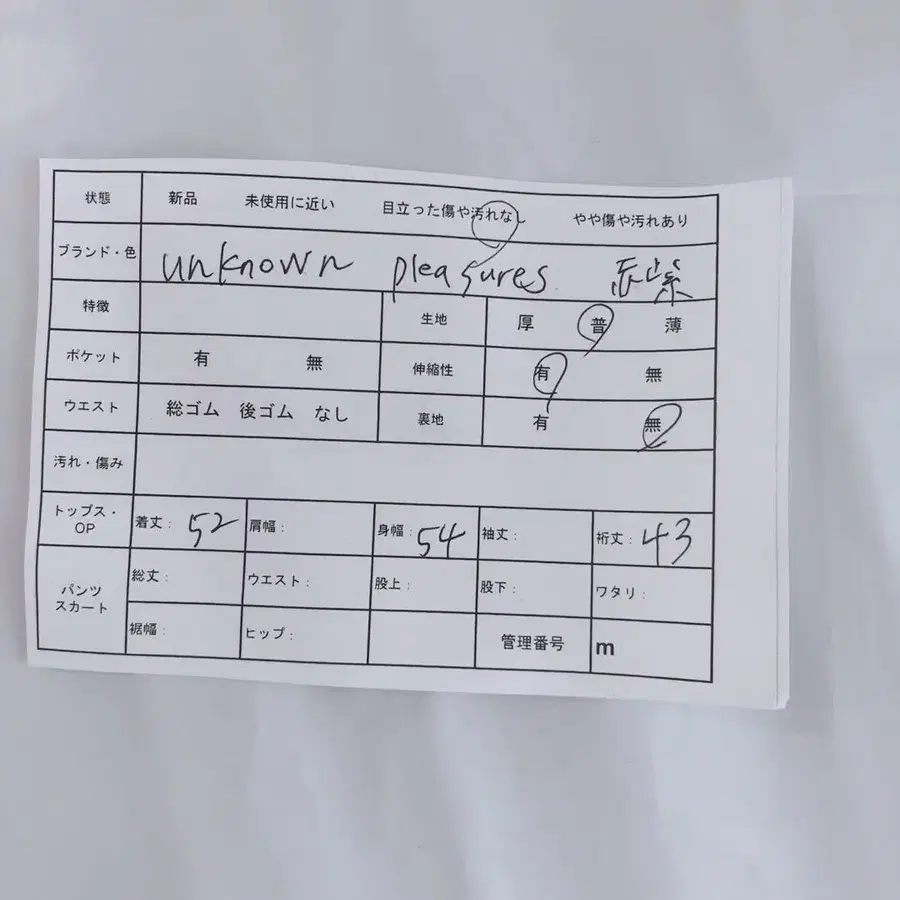 状態 新品 未使用に近い 目立った傷や汚れなし やや傷や汚れあり
ブランド・色 unknown pleasures
特徴 生地 厚 普 薄
ポケット 有 無 伸縮性 有 無
ウエスト 総ゴム 後ゴム なし 裏地 有 無
汚れ・傷み
トップス・OP 着丈: 52 肩幅: 身幅: 54 袖丈: 裄丈: 43
パンツ スカート 総丈: ウエスト: 股上: 股下: ワタリ:
裾幅: ヒップ: 管理番号 m